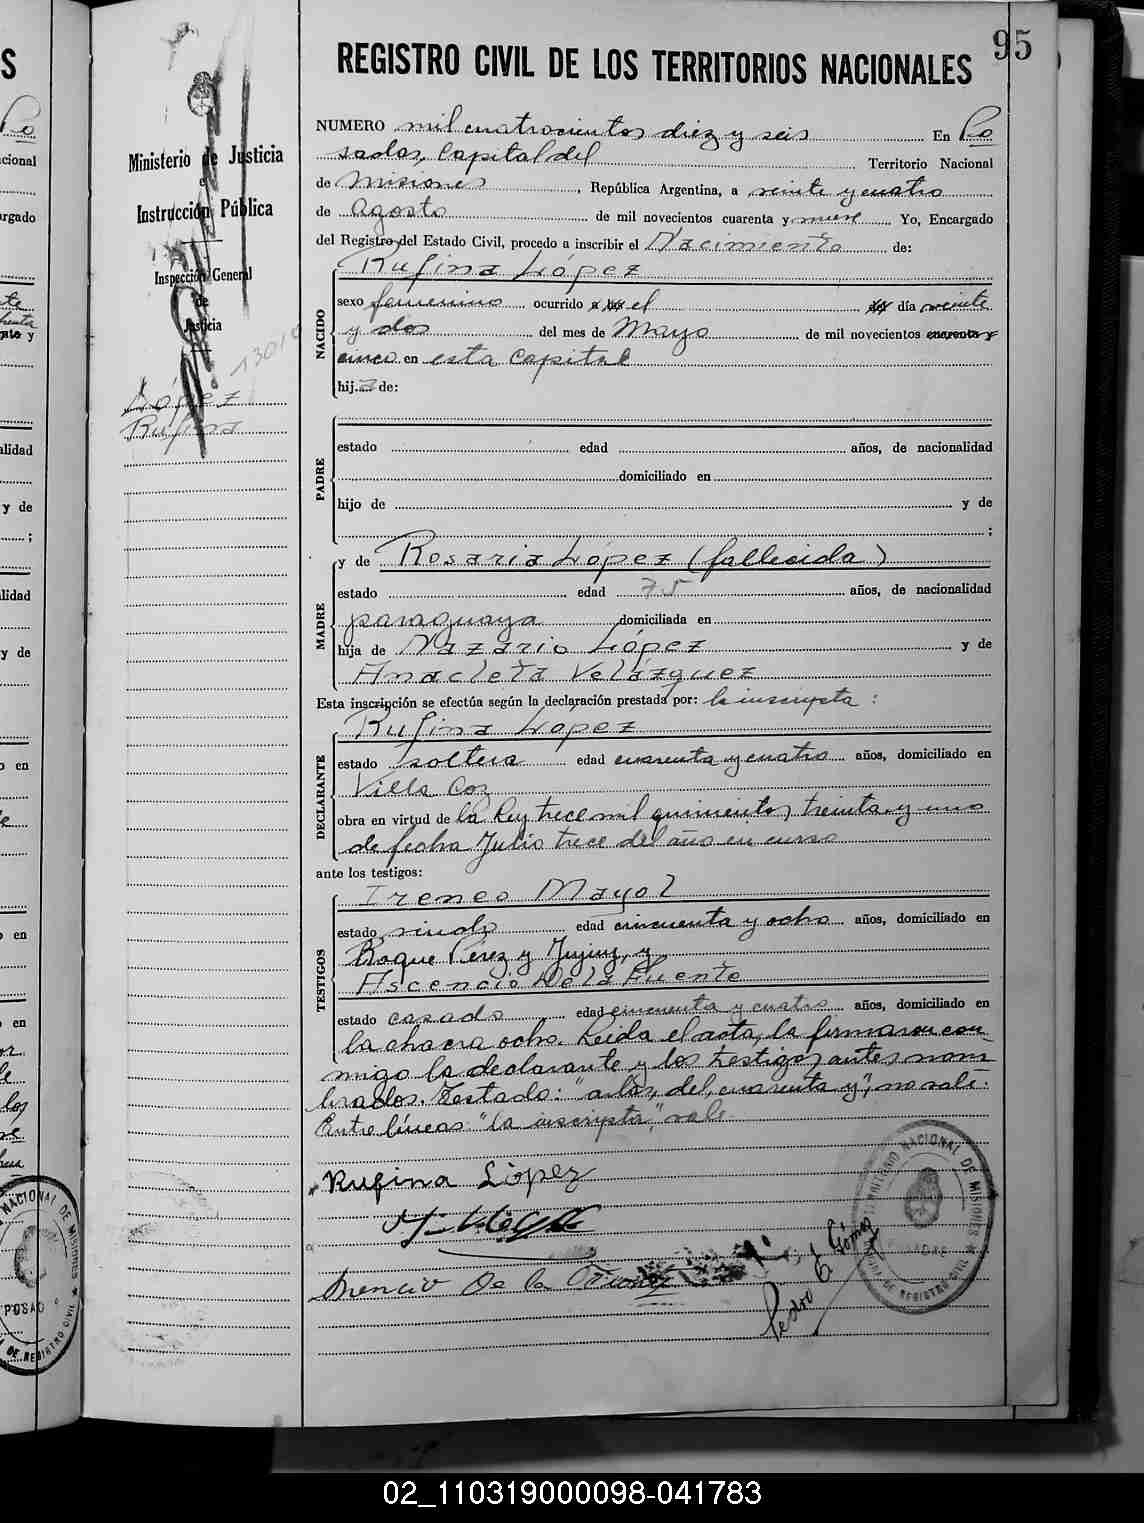 95
REGISTRO CIVIL DE LOS TERRITORIOS NACIONALES
Ministerio de Justicia
e
Instrucción Pública
Inspección General
de
Justicia
13010
López
Rufina
NUMERO mil cuatrocientos diez y seis En Po
sadas, Capital del Territorio Nacional
de Misiones, República Argentina, a veinte y cuatro
de Agosto de mil novecientos cuarenta y nueve Yo, Encargado
del Registro del Estado Civil, procedo a inscribir el Nacimiento de:
Rufina López
NACIDO
sexo femenino ocurrido a las el del día veinte
y dos del mes de Mayo de mil novecientos cuarenta y
cinco en esta Capital
hija de:
PADRE
estado edad años, de nacionalidad
domiciliado en
hijo de y de
;
y de Rosaria López (fallecida)
MADRE
estado edad 75 años, de nacionalidad
paraguaya domiciliada en
hija de Nazario López y de
Anacleta Velázquez
Esta inscripción se efectúa según la declaración prestada por: la inscripta :
Rufina López
DECLARANTE
estado soltera edad cuarenta y cuatro años, domiciliado en
Villa Coz
obra en virtud de la Ley trece mil quinientos treinta y uno
de fecha Julio trece del año en curso
ante los testigos:
Ireneo Mayol
TESTIGOS
estado viudo edad cincuenta y ocho años, domiciliado en
Roque Pérez y Jujuy, y
Ascencio De la Fuente
estado casado edad cincuenta y cuatro años, domiciliado en
la chacra ocho. Leida el acta, la firmaron con
migo la declarante y los testigos antes nom
brados. Testado: "a las, del, cuarenta y", no vale.
Entre líneas: "la inscripta", vale.
Rufina López
De la
Pedro E Gómez
TERRITORIO NACIONAL DE MISIONES
DE REGISTRO CIVIL
02_110319000098-041783